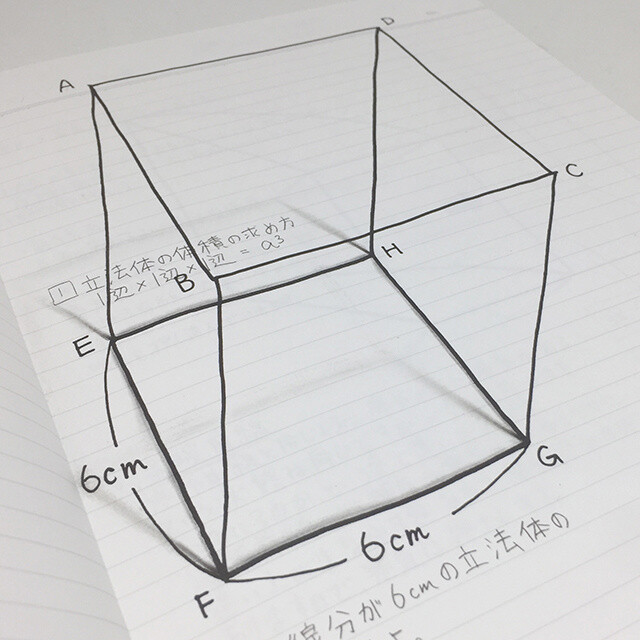 A
D
C
1 立法体の体積の求め方
1辺×1辺×1辺=a3
B
H
E
6cm
G
6cm
F
線分が6cmの立法体の